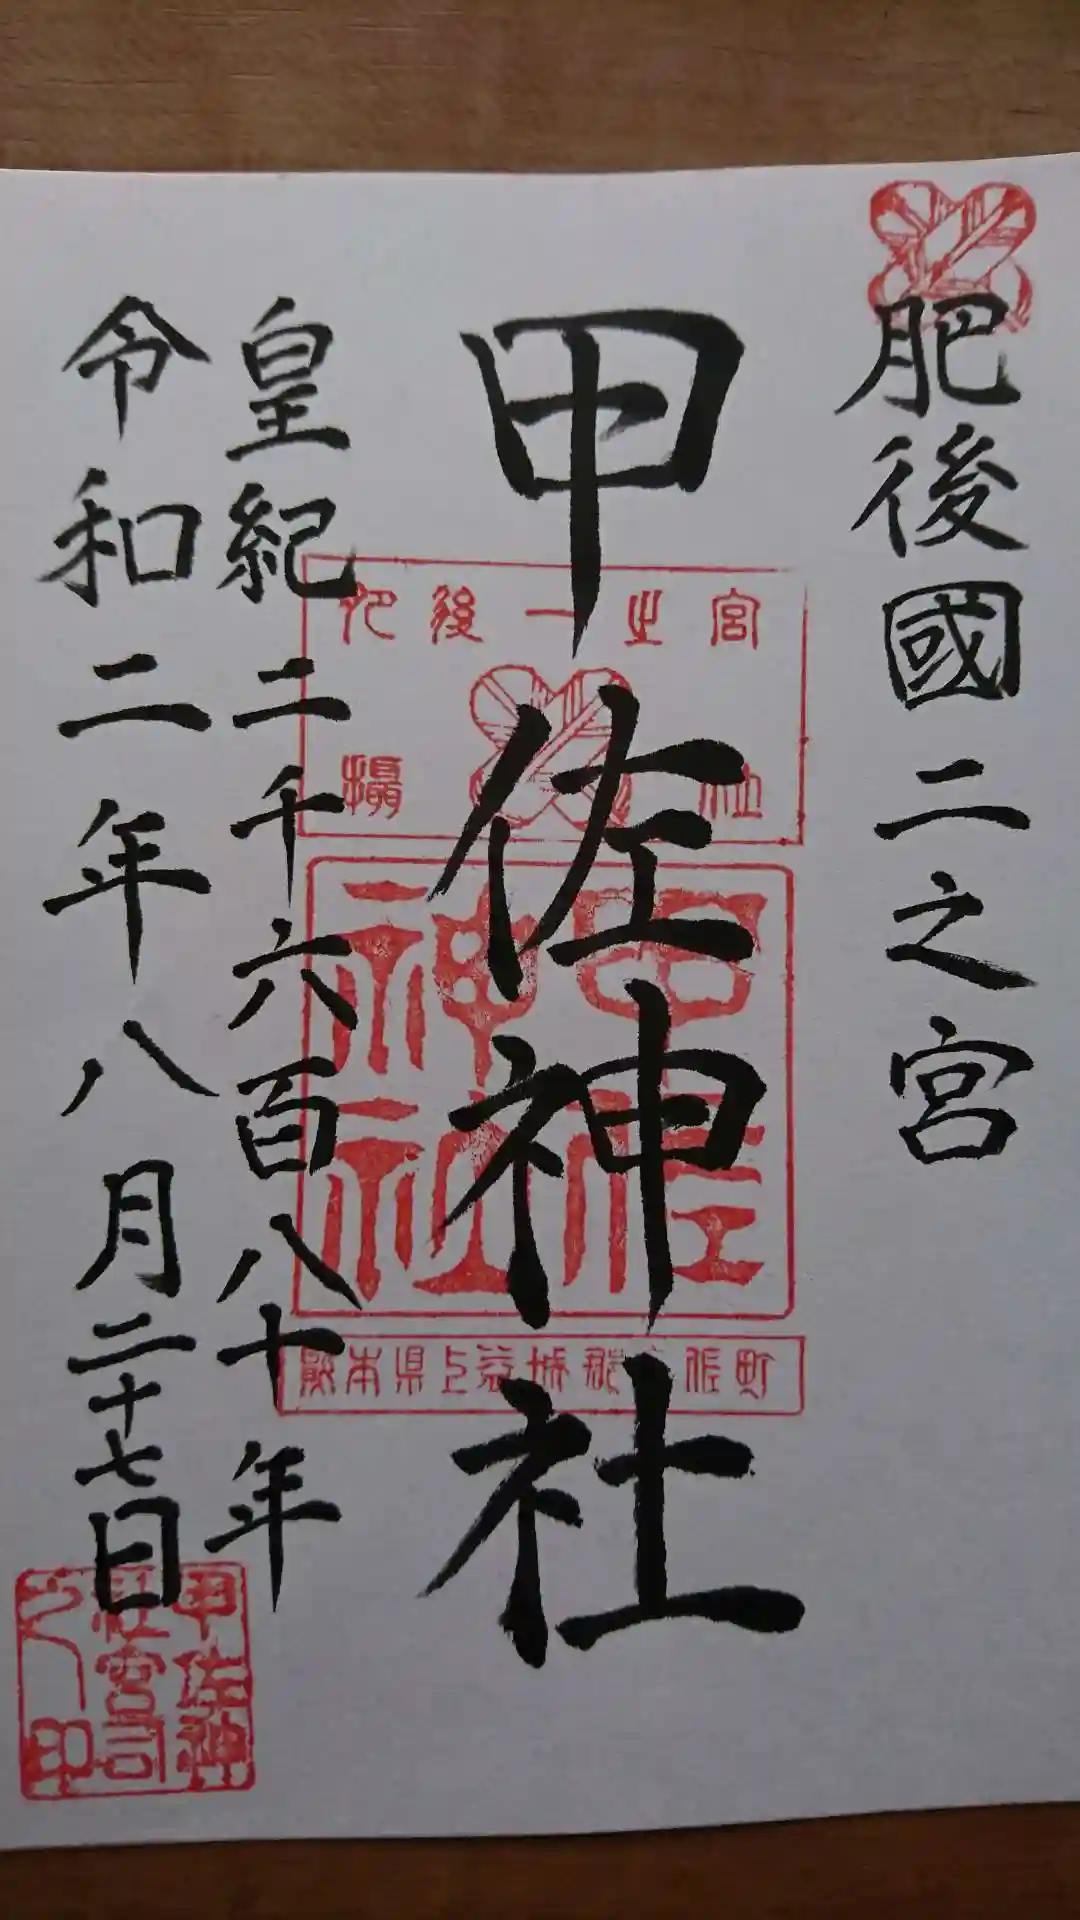 肥後國二之宮
甲佐神社
皇紀二千六百八十年
令和二年八月二十七日
肥後一之宮
摂社
甲佐神社
熊本県上益城郡甲佐町
甲佐神社宮司之印